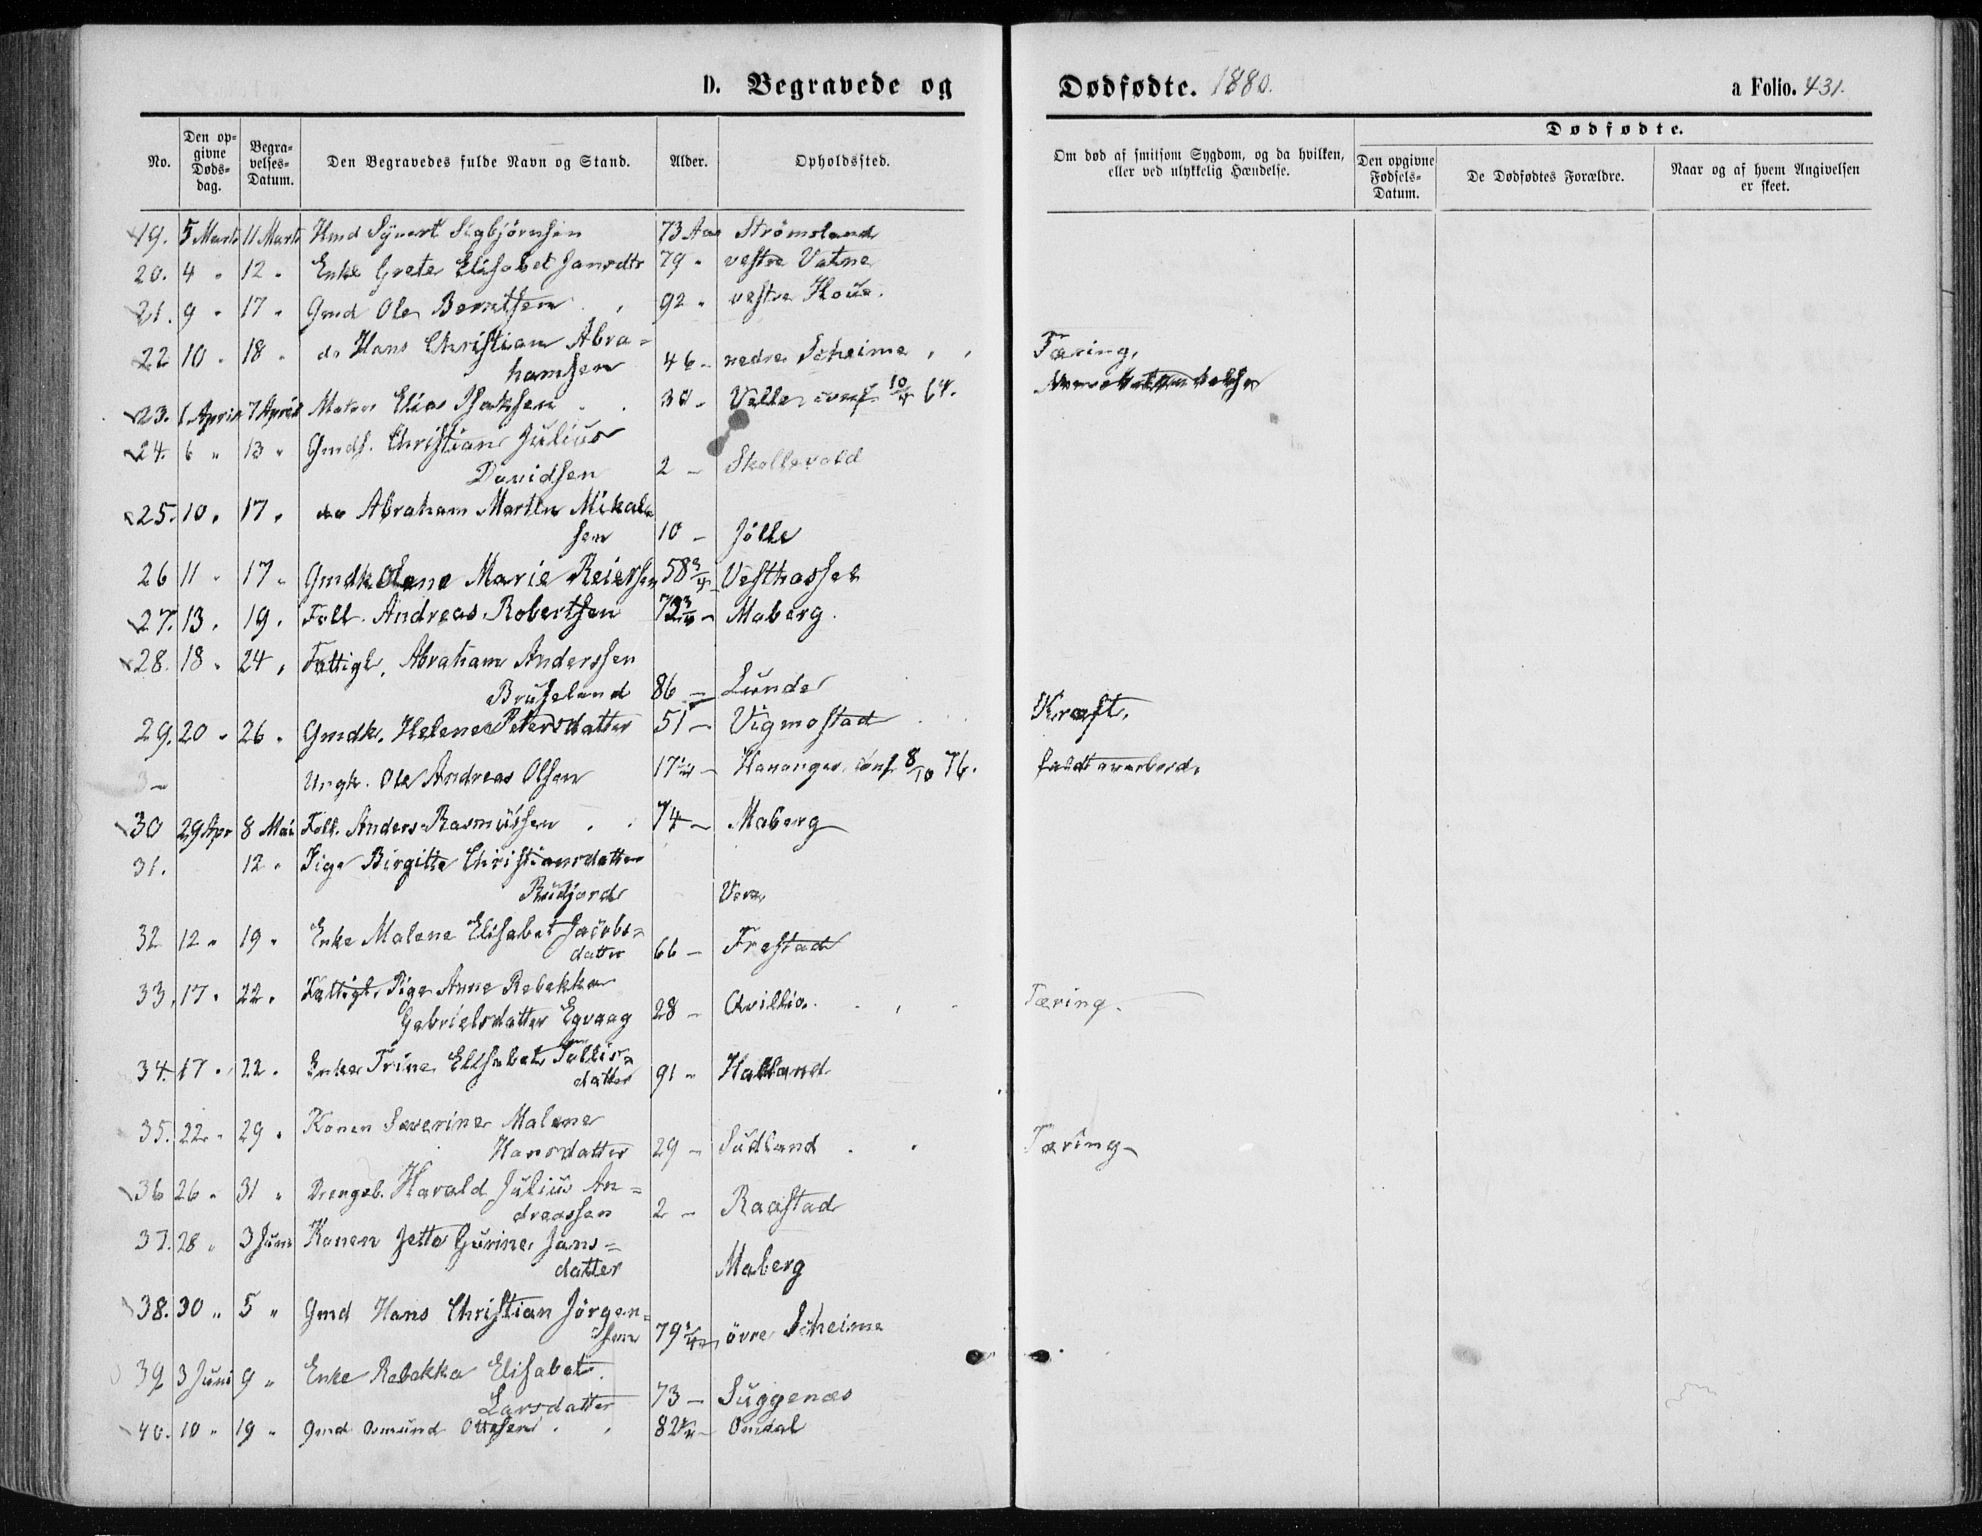 D. Begravede og Dødfødte. 1880. a Folio. 431.
No. Den opgivne Dødsdag. Begravelses-Datum. Den Begravedes fulde Navn og Stand. Alder. Opholdssted. Om død af smitsom Sygdom, og da hvilken, eller ved ulykkelig Hændelse. Dødfødte. Den opgivne Fødsels-Datum. De Dødfødtes Forældre. Naar og af hvem Angivelsen er skeet.
19. 5 Marts 11 Marts Hmd Syvert Sigbjørnsen 73 Aar Strømsland
20. 4 " 12 " Enke Grete Elisabet Jansdtr 79 " vestre Vatne
21. 9 " 17 " Gmd Ole Berntsen 92 " vestre Houe.
22 10 " 18 " do Hans Christian Abra- Tæring.
hamsen 46 - nedre Scheime
23. 1 April 7 April Matros Elias Isaksen 30 - Velle conf. 10/4 64.
24. 6 " 13 " Gmds. Christian Julius
Davidsen 2 - Skollevold
25. 10 " 17 " do Abraham Martin Mikal-
sen 10 - Jölle
26 11 " 17 " Gmdk Olene Marie Reiersen 58 3/4 Vesthassel
27. 13 " 19 " Foll. Andreas Robertsen 73 3/4 - Maberg.
28. 18 " 24 " Fattigl. Abraham Anderssen
Bruseland 86 - Lunde
29. 20 " 26 " Gmdk. Helene Petersdatter 51 - Vigmostad Kræft.
- Ungk. Ole Andreas Olsen 17 1/4 - Hananger, conf. 8/10 76. faldt overbord.
30 29 Apr 8 Mai Foll. Anders Rasmussen 74 - Maberg
31. 12 " Pige Birgitte Christiansdatter
Rudjord Vere
32 12 " 19 " Enke Malene Elisabet Jacobs-
datter 66 - Frestad
33. 17 " 22 " Fattigl. Pige Anne Rebekka
Gabrielsdatter Egvaag 28 - Qvillio. Tæring.
34. 17 " 22 " Enke Trine Elisabet Tollis-
datter 91 " Halland
35. 22 " 29 " Konen Severine Malene
Hansdatter 29 - Sudland Tæring-
36 26 " 31 " Drengeb. Harald Julius An-
dreassen 2 - Raastad
37. 28 " 3 Juni Konen Jette Gurine Jans-
datter Maberg
38. 30 " 5 " Gmd Hans Christian Jörgen-
sen 79 1/4 övre Scheime
39 3 Juni 9 " Enke Rebekka Elisabet
Larsdatter 73 - Suggenæs
40. 10 " 19 " Gmd Osmund Ottesen 82 1/4 - Omdal